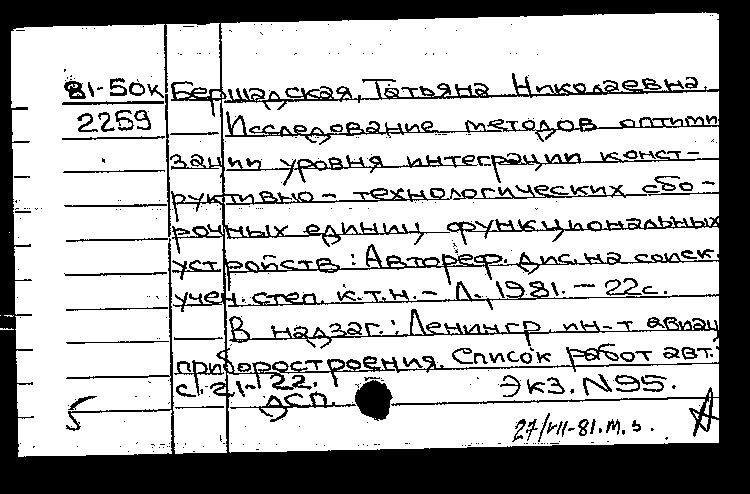 81-50к Бершадская, Татьяна Николаевна.
2259 Исследование методов оптими
зации уровня интеграции конст-
руктивно - технологических сбо-
рочных единиц функциональных
устройств : Автореф. дис. на соиск.
учен. степ. к.т.н. - Л., 1981. - 22с.
В надзаг.: Ленингр. ин-т авиац
приборостроения. Список работ авт.:
с. 21-22. Экз. N95.
ДСП.
27/VII-81. М.З.